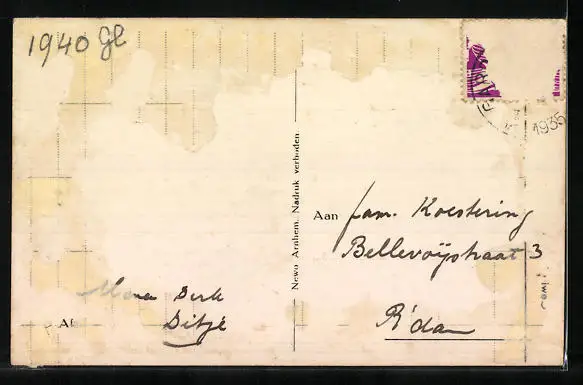 1940 gl
1935
Newo Arnhem. Nadruk verboden
Aan fam. Koestering
Bellevoijstraat 3
R'dam
Dirk
Ditjé
Af